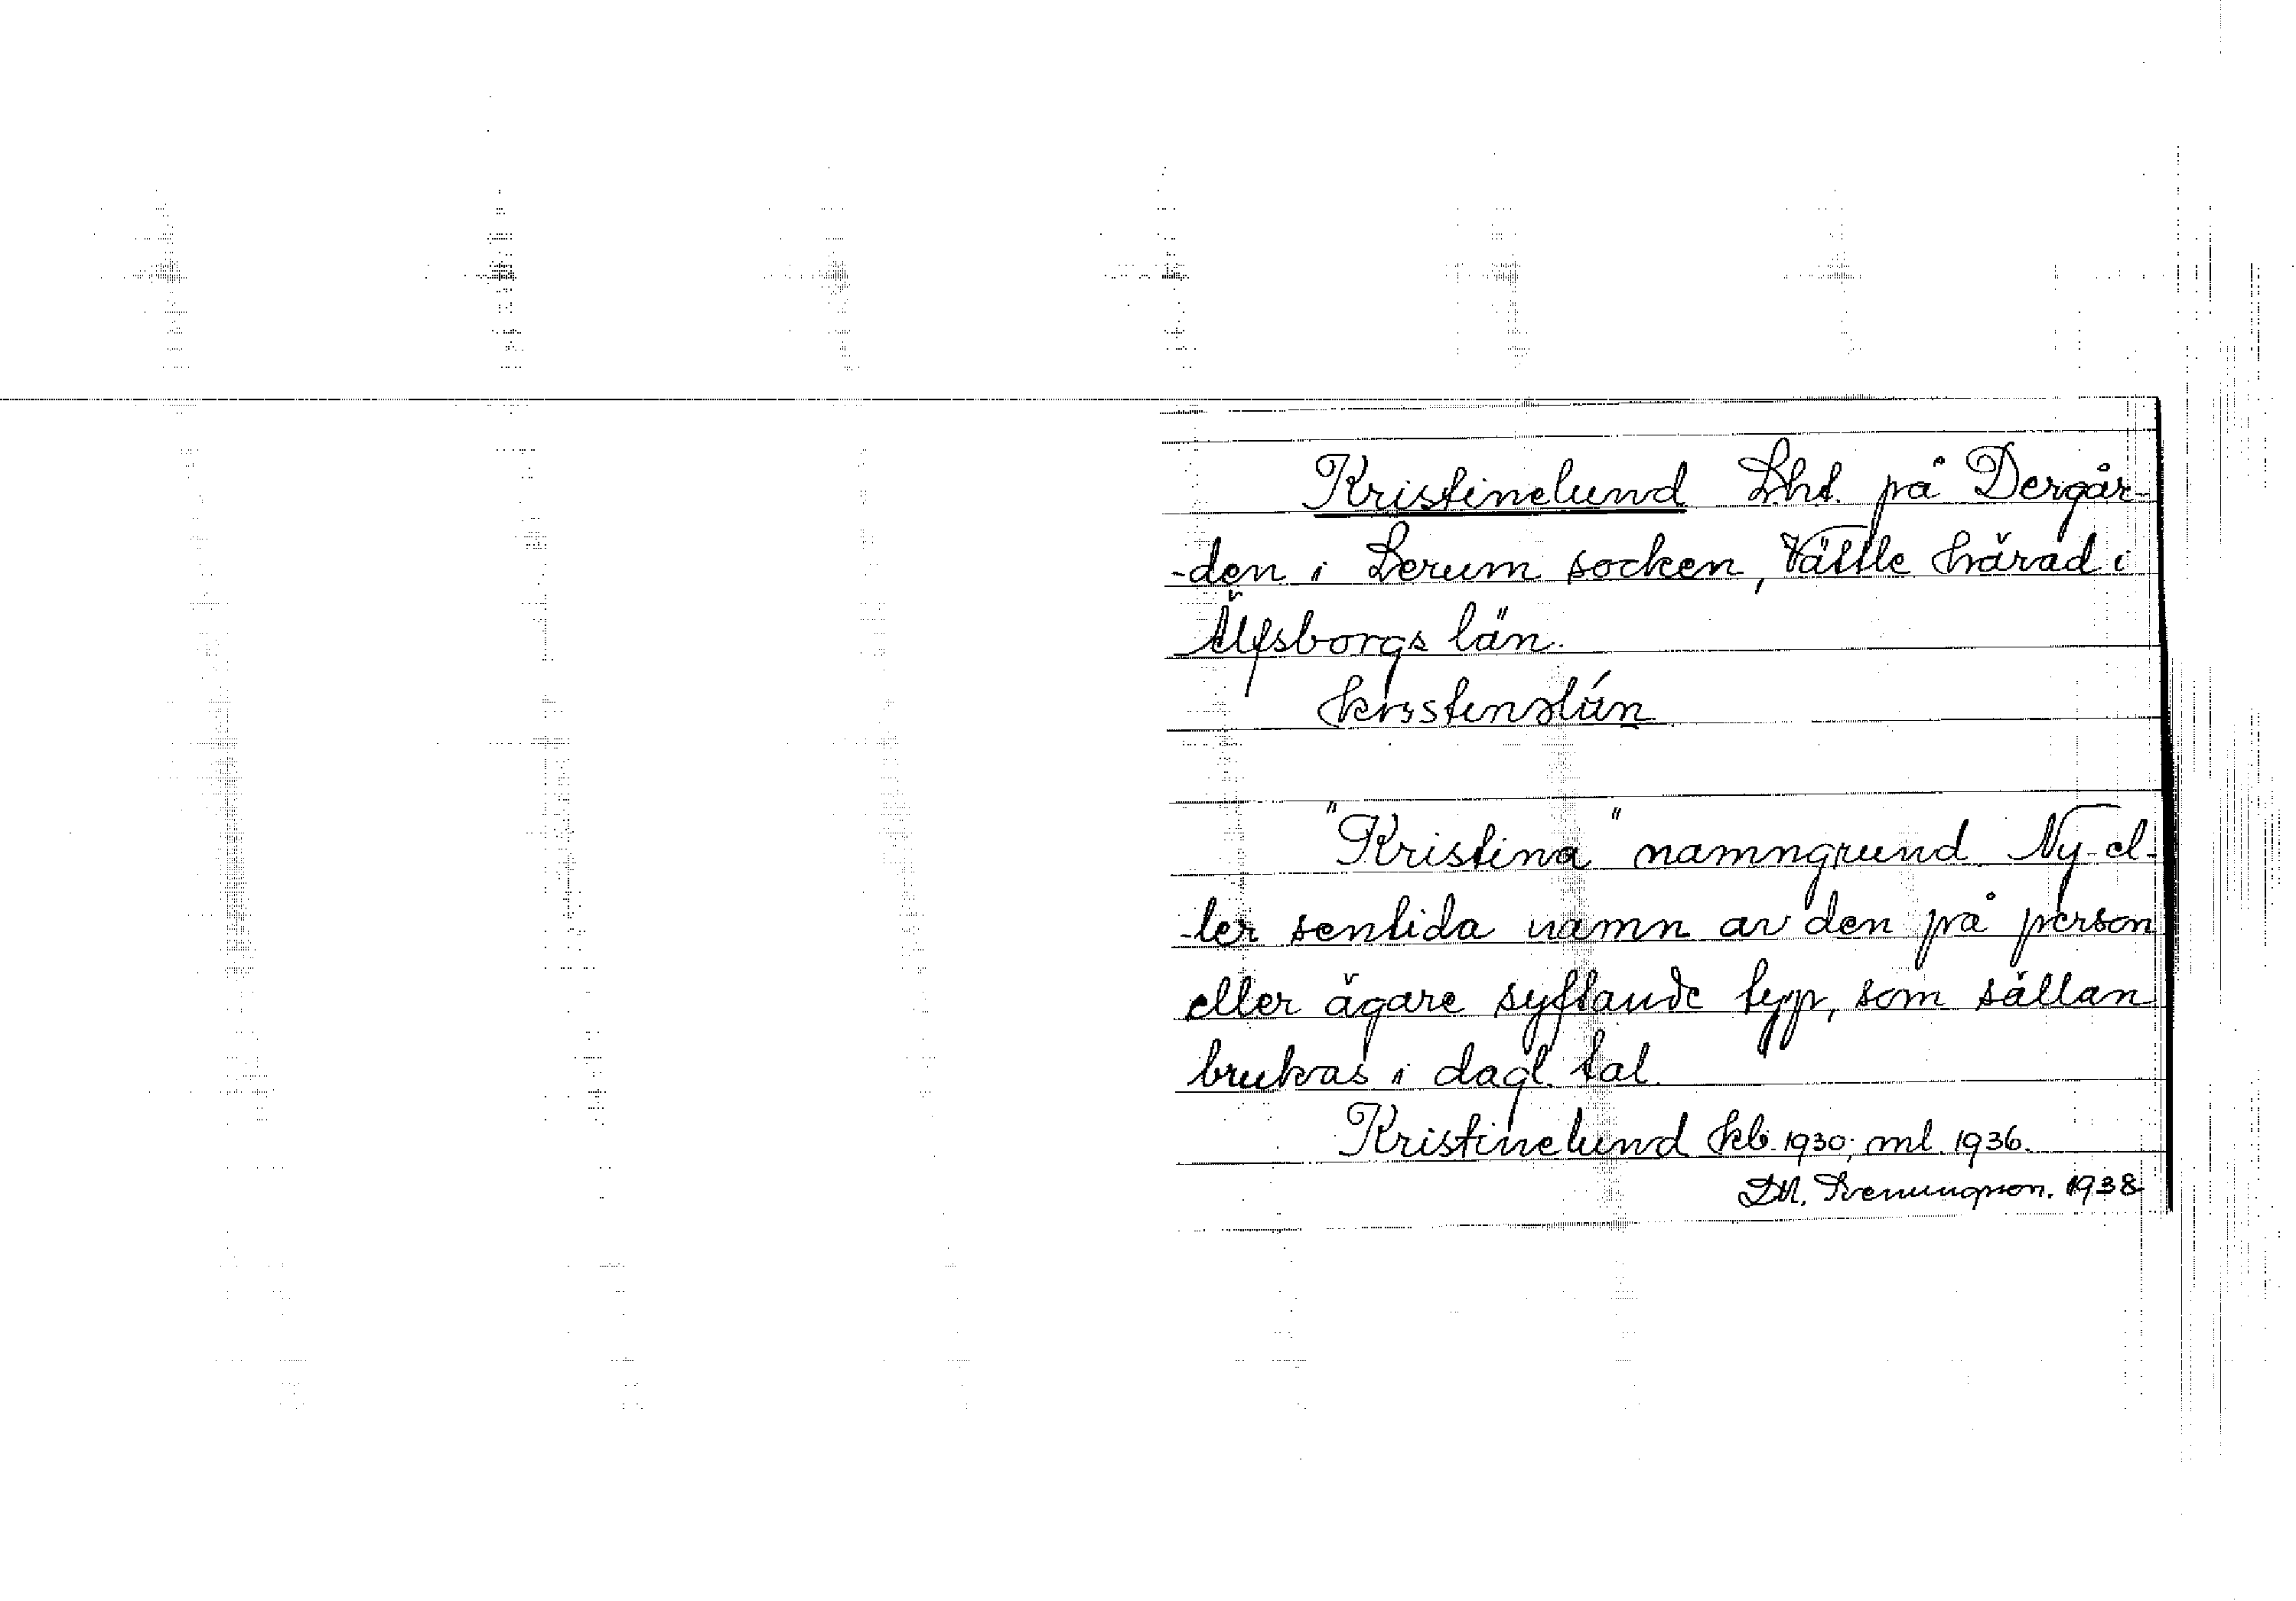 Kristinelund Lht. på Dergår-
-den i Lerum socken, Vättle härad i
Älfsborgs län.
"Kristina" namngrund. Ny- el-
-ler sentida namn av den på person
eller ägare syftande typ, som sällan
brukas i dagl. tal.
Kristinelund kb. 1930; ml. 1936.
1938